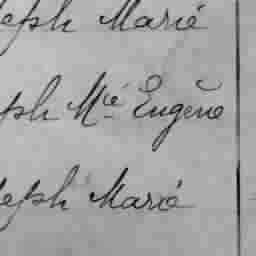 oseph Marie
seph Mie Eugène
oseph Marie